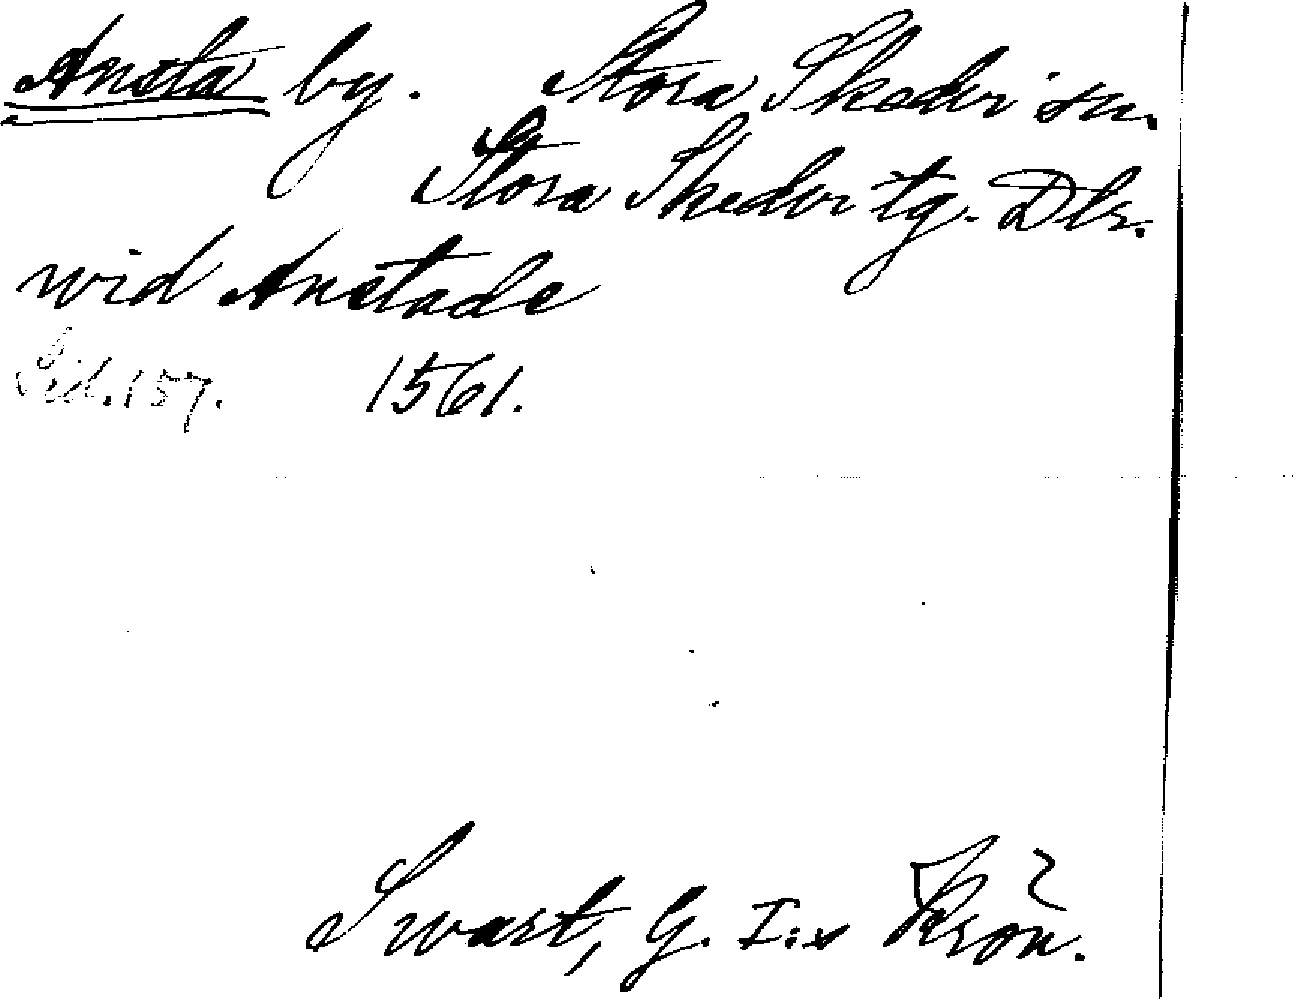 Ansta by. Stora Skedvi sn.
Stora Skedvi tg. Dlr.
wid Anstade
Sid. 157. 1561.
Swart, G. I:s Krön.